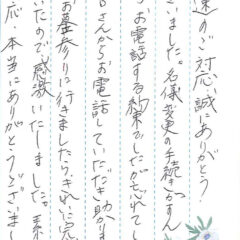 速のご対応、誠にありがとう
さいました。名儀変更の手続きがすん
らお電話する約束でしたが忘れてし
日さんからお電話していただき助かりま
お墓参りに行きましたらきれいに完
いたので感激いたしました。素
応・本当にありがとうございまし